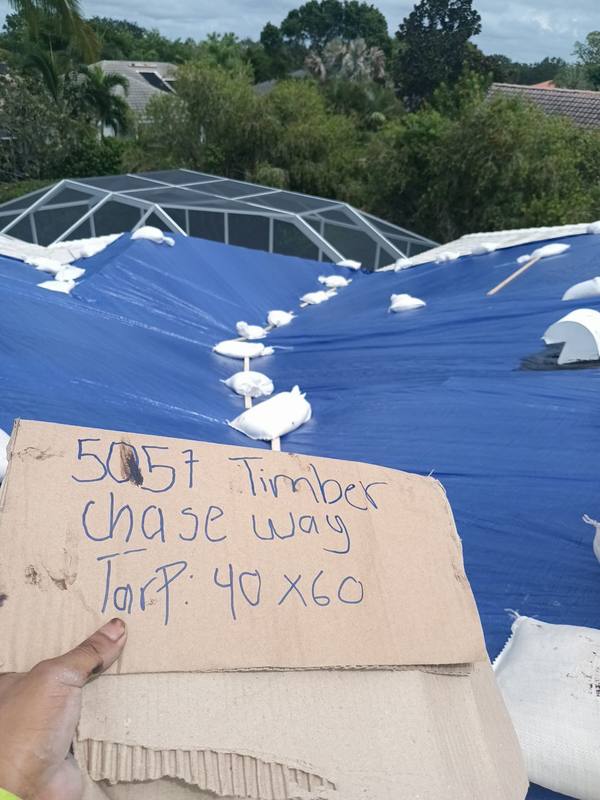 5057 Timber
chase way
Tarp: 40 x60